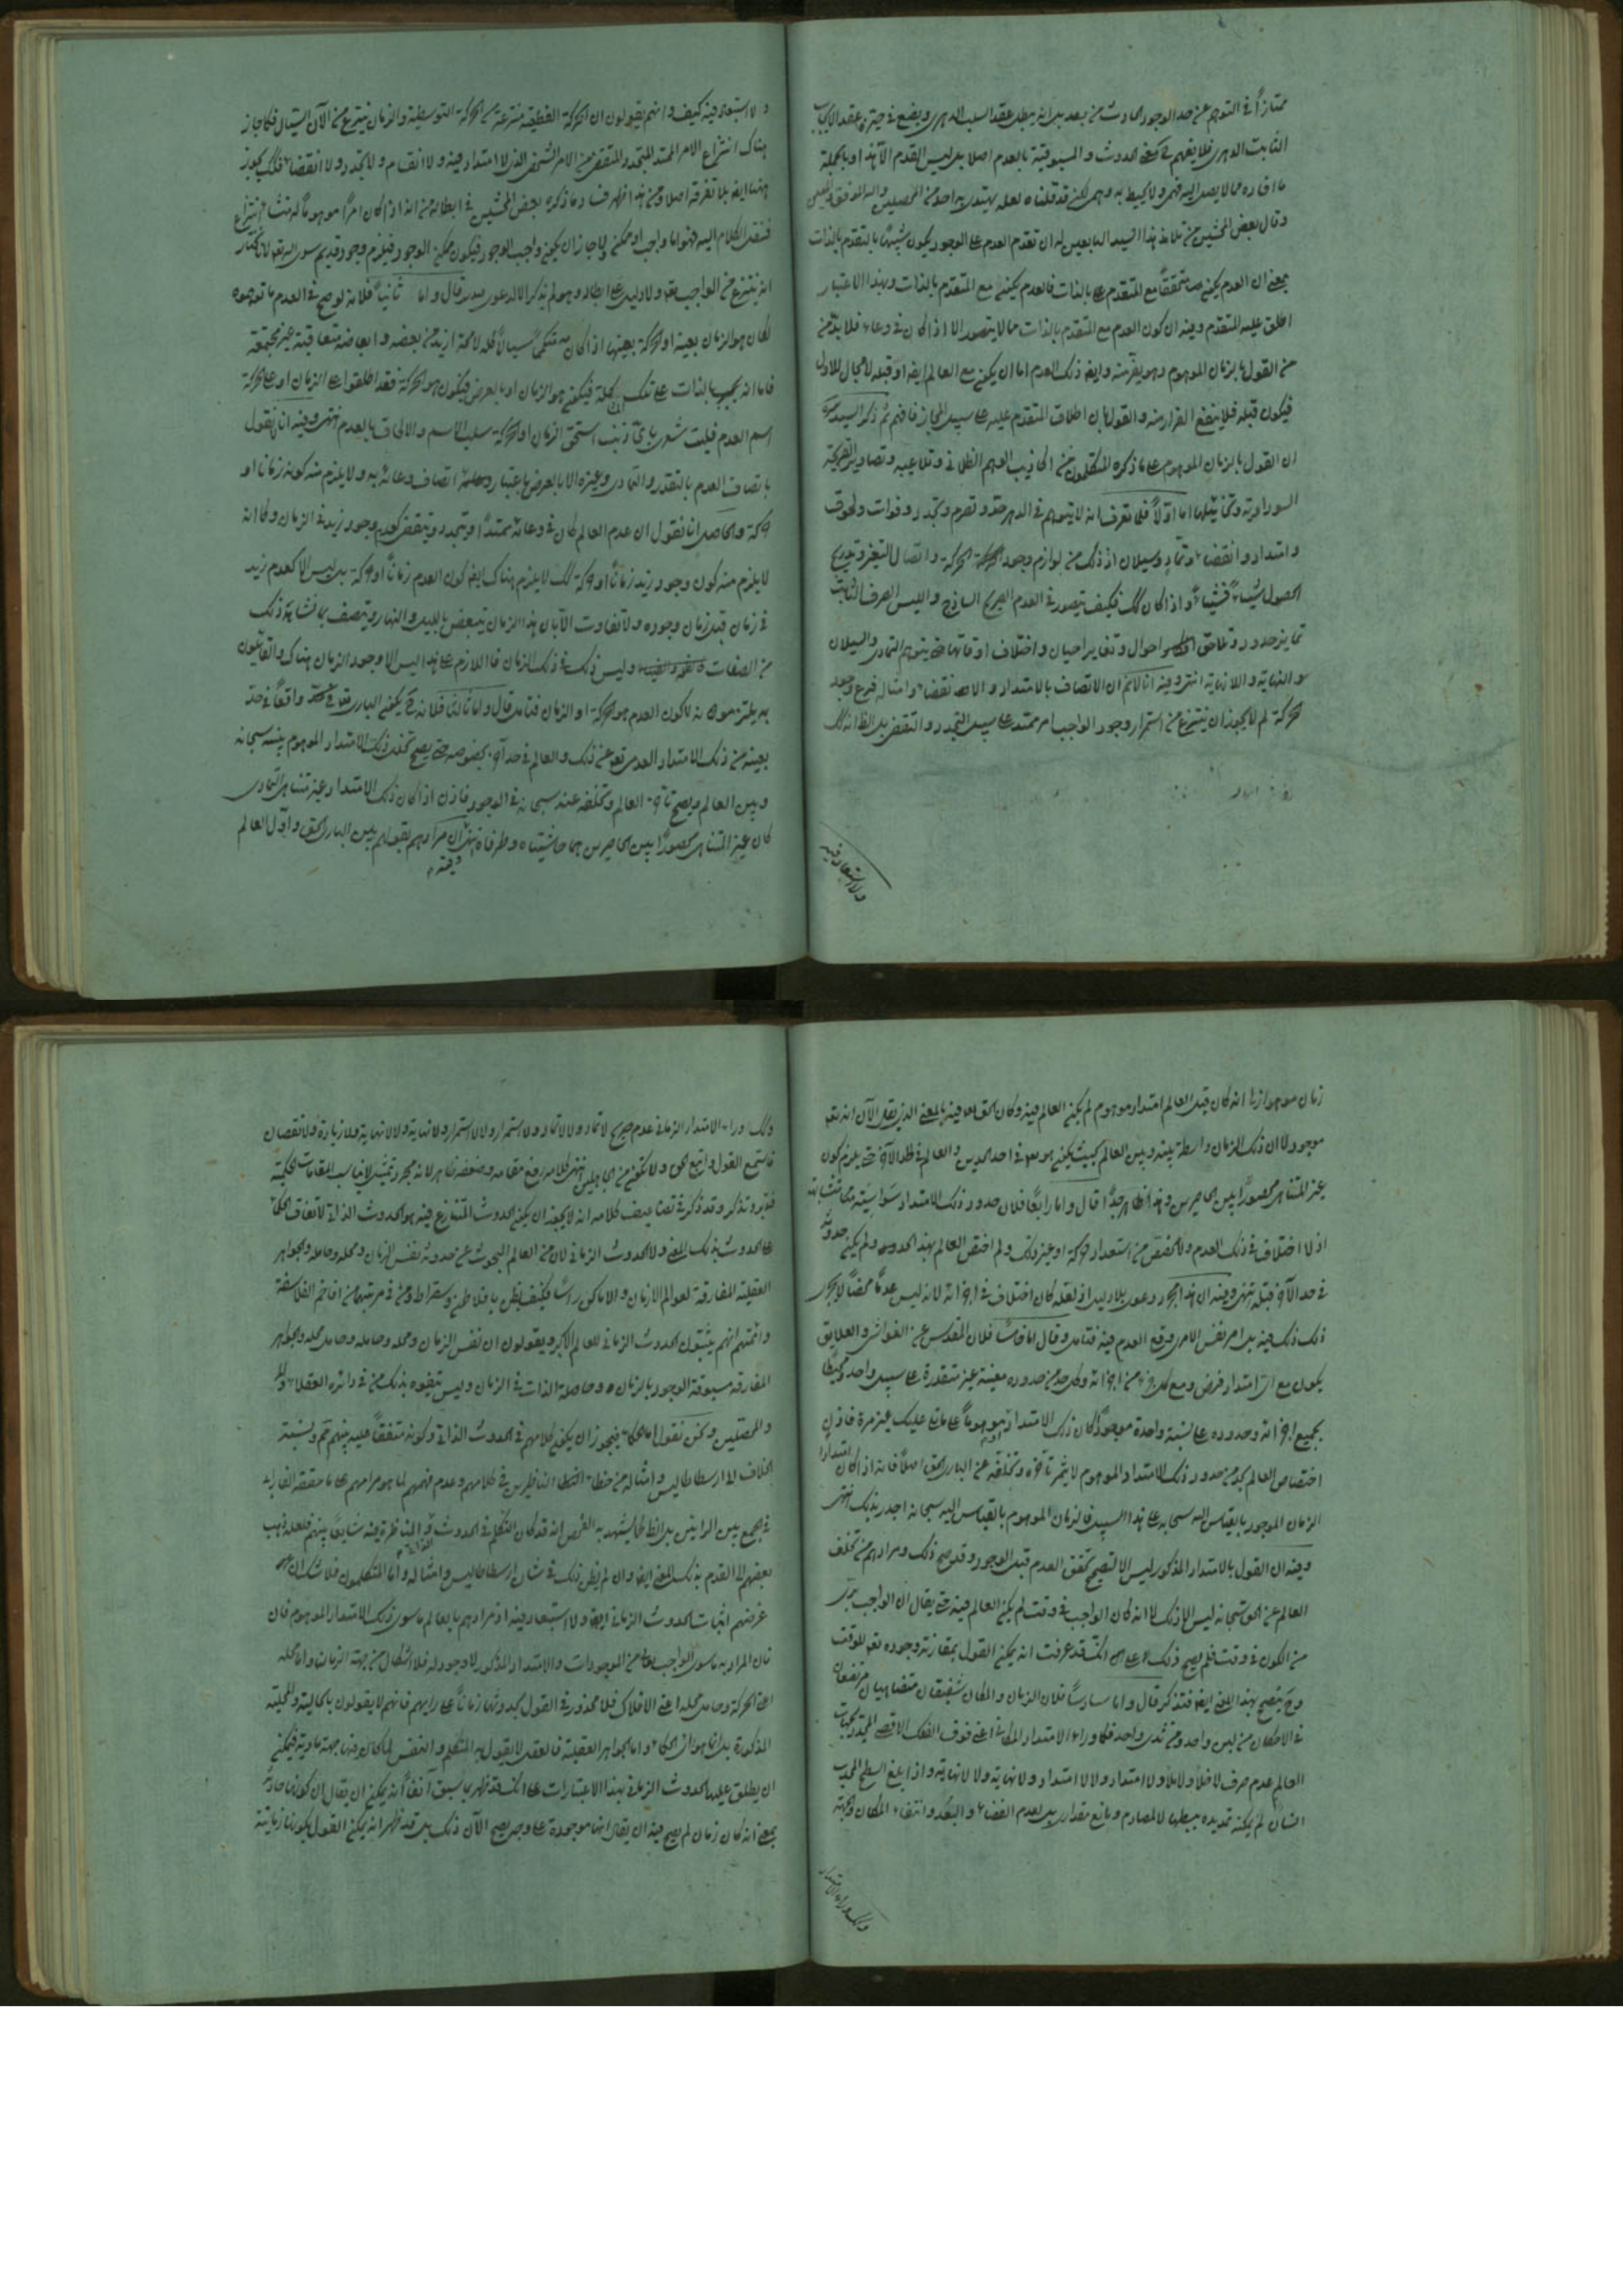 ممتازاً في التوهم عن حد الوجود الحادث من بعد بل انه يبطل عقد السلب الدهري ويضع في حيزه عقد الايجاب
الثابت الدهري فلا يفهم الحدوث و المسبوقية بالعدم اصلا بل ليس القدم الا هذا وبالجملة
ما افاده مما لا يصل اليه فهمي ولا يحيط به وهمي لكن قد قلناه لعله يهتدي به احد من المحصلين والله الموفق
وقال بعض المحشين من تلامذة هذا السيد التابعين له ان تقدم العدم على الوجود يكون شبيهاً بالتقدم بالذات
بمعنى ان العدم يكون متحققاً مع المتقدم بالذات فالعدم يكون مع المتقدم بالذات وبهذا الاعتبار
اطلق عليه المتقدم وفيه ان كون العدم مع المتقدم بالذات مما لا يتصور الا اذا كان في وعاء فلا بد من
من القول بالزمان الموهوم وهو يفر منه وايضا ذلك العدم اما ان يكون مع العالم ايضا او قبله لا مجال للاول
فيكون قبله فلا ينفع الفرار منه والقول بان اطلاق المتقدم عليه على سبيل المجاز فافهم ثم ذكر السيد
ان القول بالزمان الموهوم على ما ذكره المتكلمون من اكاذيب الوهم الظلماني وتلاعيبه وتصاوير القريحة
السوداوية وتخاييلها اما اولاً فلما تعرف انه لا يتوهم في الدهر حد و تصرم و تجدد و فوات ولحوق
وامتداد وانقضاء وتماد وسيلان اذ ذلك من لوازم وجود الحركة واتصال التغير وتدريج
الحصول شيئاً فشيئاً واذا كان كذلك فكيف يتصور في العدم الصريح الساذج والليس الصرف الثابت
تمايز حدود وتلاحق احوال وتغاير احيان واختلاف اوقات حتى يتوهم التمادي والسيلان
والنهاية و اللانهاية انتهى وفيه انا لا نم ان الاتصاف بالامتداد و الانقضاء وامثاله فرع وجود
الحركة لم لا يجوز ان ينتزع من استمرار وجود الواجب امر ممتد على سبيل التجدد والتقضي بل الظ انه لك
ولا استبعاد فيه
ولا استبعاد فيه كيف وانهم يقولون ان الحركة القطعية منتزعة من الحركة التوسطية والزمان ينتزع من الآن السيال فكما جاز
هناك انتزاع الامر الممتد المتجدد المتقضي من الامر الشخصي الذي لا امتداد فيه ولا انقسام ولا تجدد ولا انقضاء فلك يجوز
ههنا ايضا بلا تفرقة اصلا ومن هذا ظهر فساد ما ذكره بعض المحشين في ابطاله من انه اذا كان امراً موهوماً له منشاء انتزاع
فننقل الكلام اليه فهو اما واجب او ممكن ولا جائز ان يكون واجب الوجود فيكون ممكن الوجود فيلزم وجود قديم سوى الله تعالى لانا نختار
انه ينتزع من الواجب تعالى ولا دليل على ابطاله وهو لم يذكر الا الدعوى قال واما ثانياً فلانه لو صح في العدم ما توهموه
لكان هو الزمان بعينه او الحركة بعينها اذا كان كماً سيالاً فله لا محة ازيد من بعضه وابعاضه متعاقبة غير مجتمعة
فاما انه بالذات على تلك فيكون هو الزمان او بالعرض فيكون هو الحركة فقد اطلقوا على الزمان او على الحركة
اسم العدم فليت شعري باي ذنب استحق الزمان او الحركة سلب الاسم والالحاق بالعدم انتهى وفيه انا نقول
باتصاف العدم بالتقدر والتمادي وغيره الا بالعرض باعتبار اتصاف وعائه به ولا يلزم منه كونه زمانا او
حركة والحاصل انا نقول ان عدم العالم كان في وعاء ممتد او يتجدد ويتقضى كعدم وجود زيد في الزمان وكما انه
لا يلزم منه كون وجود زيد زماناً او حركة لك لا يلزم هناك ايضا كون العدم زماناً او حركة بل ليس الا كعدم زيد
في زمان قبل زمان وجوده ولا تفاوت الا بان هذا الزمان يتبعض بالليل والنهار ويتصف بما شابه ذلك
من الصفات وليس ذلك في ذلك الزمان فاللازم على هذا ليس الا وجود الزمان هناك والقائلون
به يلتزمونه لا كون العدم هو الحركة او الزمان فتامل قال واما ثالثا فلانه ح يكون الباري تعالى واقعاً في حد
بعينه من ذلك الامتداد العدمي تعالى عن ذلك والعالم في حد آخر بخصوصه حتى يصح تخلل ذلك الامتداد الموهوم بينه سبحانه
وبين العالم ويصح تاخر العالم وتخلفه عنه سبحانه في الوجود فاذن اذا كان ذلك الامتداد غير متناهي التمادي
كان غير المتناهي محصوراً بين الحاصرين هما حاشيتاه وطرفاه انتهى وفيه ان مرادهم بقولهم بين الباري الحق واول العالم
زمان موهوم انه كان قبل العالم امتداد موهوم لم يكن العالم فيه وكان الحق تعالى فيه بالمعنى الذي يقال الآن انه تعالى
موجود لا ان ذلك الزمان واسطة بينه وبين العالم بحيث يكون هو تعالى في احد الحدين والعالم في الآخر حتى يلزم كون
غير المتناهي محصوراً بين الحاصرين وهذا ظاهر جداً قال واما رابعاً فلان حدود ذلك الامتداد سواسية متشابهة
اذ لا اختلاف في ذلك العدم ولا مخصص من استعداد حركة او غير ذلك ولم اختص العالم بهذا الحد ولم يكن حدوثه
في حد الآخر قبله انتهى وفيه ان هذا مجرد دعوى بلا دليل اذ لعله كان اختلاف في اجزائه لانه ليس عدماً محضاً لا يجري
ذلك فيه بل امر نفس الامري وقع العدم فيه فتامل وقال اما خامساً فلان المقدس عن الغواشي والعلايق
يكون مع اي امتداد فرض ومع كل جزء من اجزائه وكل حد من حدوده معية غير متقدرة على سبيل واحد ومحيطاً
بجميع اجزائه وحدوده على نسبة واحدة موجوداً كان ذلك الامتداد او موهوماً على ما تلي عليك غير مرة فاذن
اختصاص العالم بحد من حدود ذلك الامتداد الموهوم لا يثمر تاخره وتخلفه عن الباري الحق اصلاً فانه اذا كان امتداد
الزمان الموجود بالقياس اليه سبحانه على هذا السبيل فالزمان الموهوم بالقياس اليه سبحانه اجدر بذلك انتهى
وفيه ان القول بالامتداد المذكور ليس الا لتصحيح تحقق العدم قبل الوجود وقد صح ذلك ومرادهم من تخلف
العالم عن الحق سبحانه ليس الا ذلك لا انه كان الواجب في وقت لم يكن العالم فيه حتى يقال ان الواجب بري
من الكون في وقت فلم يصح ذلك على انك قد عرفت انه يمكن القول بمقارنة وجوده تعالى للوقت
وح يصح بهذا المعنى ايضا فتذكر قال واما سادساً فلان الزمان والمكان شقيقان متضاهيان مرتضعان
في الاحكام من لبن واحد ومن ثدي واحد فكما وراء الامتداد المكاني اعني فوق الفلك الاقصى المحدد للجهات
العالم عدم صرف لا خلاء ولا ملاء ولا امتداد ولا لا امتداد ولا نهاية ولا لا نهاية واذا بلغ السطح المحدب
انسان لم يمكنه تمديد يده بسطها لا لمصادم ومانع مقداري بل لعدم الفضاء والبعد وانتفاء المكان والجهة
ولك وراء الامتداد
ولك وراء الامتداد الزماني عدم صريح لا تماد ولا لا تماد ولا استمرار ولا لا استمرار ولا نهاية ولا لا نهاية ولا زيادة ولا نقصان
فاستمع القول واتبع الحق ولا تكونن من الجاهلين انتهى كلامه رفع مقامه وضعفه ظاهر لانه مجرد تمثيل لا يناسب المقامات الحكمية
فتدبر وتذكر وقد ذكر في تضاعيف كلامه انه لا يجوز ان يكون الحدوث المتنازع فيه هو الحدوث الذاتي لاتفاق الكل
على الحدوث بذلك المعنى ولا الحدوث الزماني لان من العالم المبحوث عن حدوثه نفس الزمان ومحله وحامله والجواهر
العقلية المفارقة لعوالم الازمان والاماكن راساً فكيف يظن بافلاطون وسقراط ومن في مرتبتهما من افاخم الفلاسفة
وائمتهم انهم يثبتون الحدوث الزماني للعالم الاكبر ويقولون ان نفس الزمان ومحله وحامله وحامل محله والجواهر
المفارقة مسبوقة الوجود بالزمان وحاصلة الذات في الزمان وليس يتفوه بذلك من في دائرة العقلاء
والمحصلين ونحن نقول اما الحكماء فيجوز ان يكون كلامهم في الحدوث الذاتي وكونه متفقاً عليه بينهم ثم ونسبة
الخلاف الى ارسطاطاليس وامثاله من خطاء الناظرين في كلامهم وعدم فهمهم لما هو مرامهم على ما حققه الفارابي
في الجمع بين الرايين بل الظ كما يشهد به الفحص انه قد كان التكلم في الحدوث الذاتي والمناظرة فيه شايعاً بينهم فلعله ذهب
بعضهم الى القدم بذلك المعنى ايضا وان لم يظن ذلك في شان ارسطاطاليس وامثاله واما المتكلمون فلا شك ان
غرضهم اثبات الحدوث الزماني ايضا ولا استبعاد فيه اذ مرادهم بالعالم ما سوى ذلك الامتداد الموهوم فان
فان المراد به ما سوى الواجب تعالى من الموجودات والامتداد المذكور لا وجود له فلا اشكال من جهة الزمان واما محله
اعني الحركة وحامل محله اعني الافلاك فلا محذور في القول بحدوثها زماناً على رايهم فانهم لا يقولون بالحالية والمحلية
المذكورة بل انما هو راي الحكماء واما الجواهر العقلية فالعقل لا يقول به المتكلم و النفس لما كان فيها جهة مادية فيمكن
ان يطلق عليها الحدوث الزماني بهذا الاعتبارات على انك قد ظهر بما سبق آنفاً انه يمكن ان يقال ان كونها حادثة
بمعنى انه كان زمان لم يصح فيه ان يقال انها موجودة على وجه يصح الآن ذلك بل قد ظهر انه يمكن القول بكونها زمانية